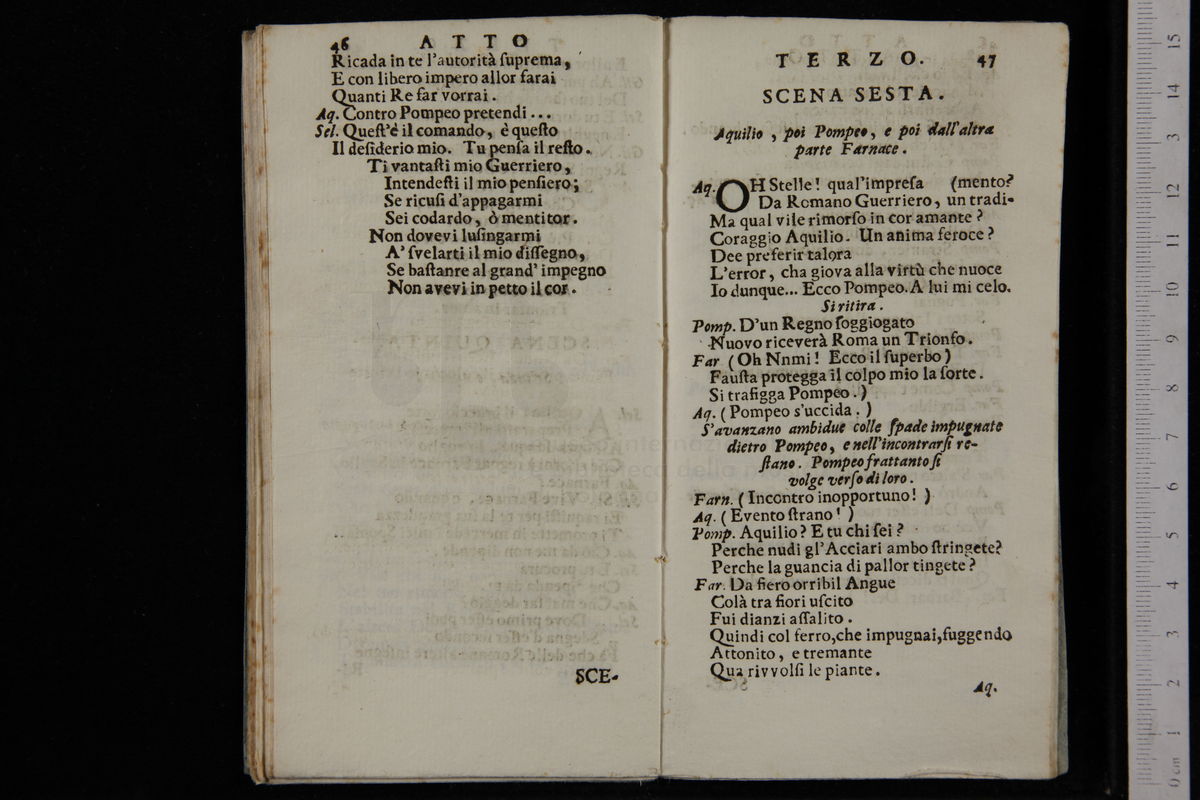 46 ATTO
Ricada in te l'autorità ſuprema,
E con libero impero allor farai
Quanti Re far vorrai.
Aq. Contro Pompeo pretendi...
Sel. Queſt'è il comando, è queſto
Il deſiderio mio. Tu penſa il reſto.
Ti vantaſti mio Guerriero,
Intendeſti il mio penſiero;
Se ricuſi d'appagarmi
Sei codardo, ò mentitor.
Non dovevi luſingarmi
A' ſvelarti il mio diſſegno,
Se baſtanre al grand' impegno
Non avevi in petto il cor.
SCE-
TERZO. 47
SCENA SESTA.
Aquilio, poi Pompeo, e poi dall'altra
parte Farnace.
Aq. OH Stelle! qual'impreſa (mento?
Da Romano Guerriero, un tradi-
Ma qual vile rimorſo in cor amante?
Coraggio Aquilio. Un anima feroce?
Dee preferir talora
L'error, cha giova alla virtù che nuoce
Io dunque... Ecco Pompeo. A lui mi celo.
Si ritira.
Pomp. D'un Regno ſoggiogato
Nuovo riceverà Roma un Trionfo.
Far (Oh Nnmi! Ecco il ſuperbo)
Fauſta protegga il colpo mio la ſorte.
Si trafigga Pompeo.)
Aq. (Pompeo s'uccida.)
S'avanzano ambidue colle ſpade impugnate
dietro Pompeo, e nell'incontrarſi re-
ſtano. Pompeo frattanto ſi
volge verſo di loro.
Farn. (Incontro inopportuno!)
Aq. (Evento ſtrano!)
Pomp. Aquilio? E tu chi ſei?
Perche nudi gl'Acciari ambo ſtringete?
Perche la guancia di pallor tingete?
Far. Da fiero orribil Angue
Colà tra fiori uſcito
Fui dianzi aſſalito.
Quindi col ferro, che impugnai, fuggendo
Attonito, e tremante
Qua rivvolſi le piante.
Aq.
15
14
13
12
11
10
9
8
7
6
5
4
3
2
1
0 cm